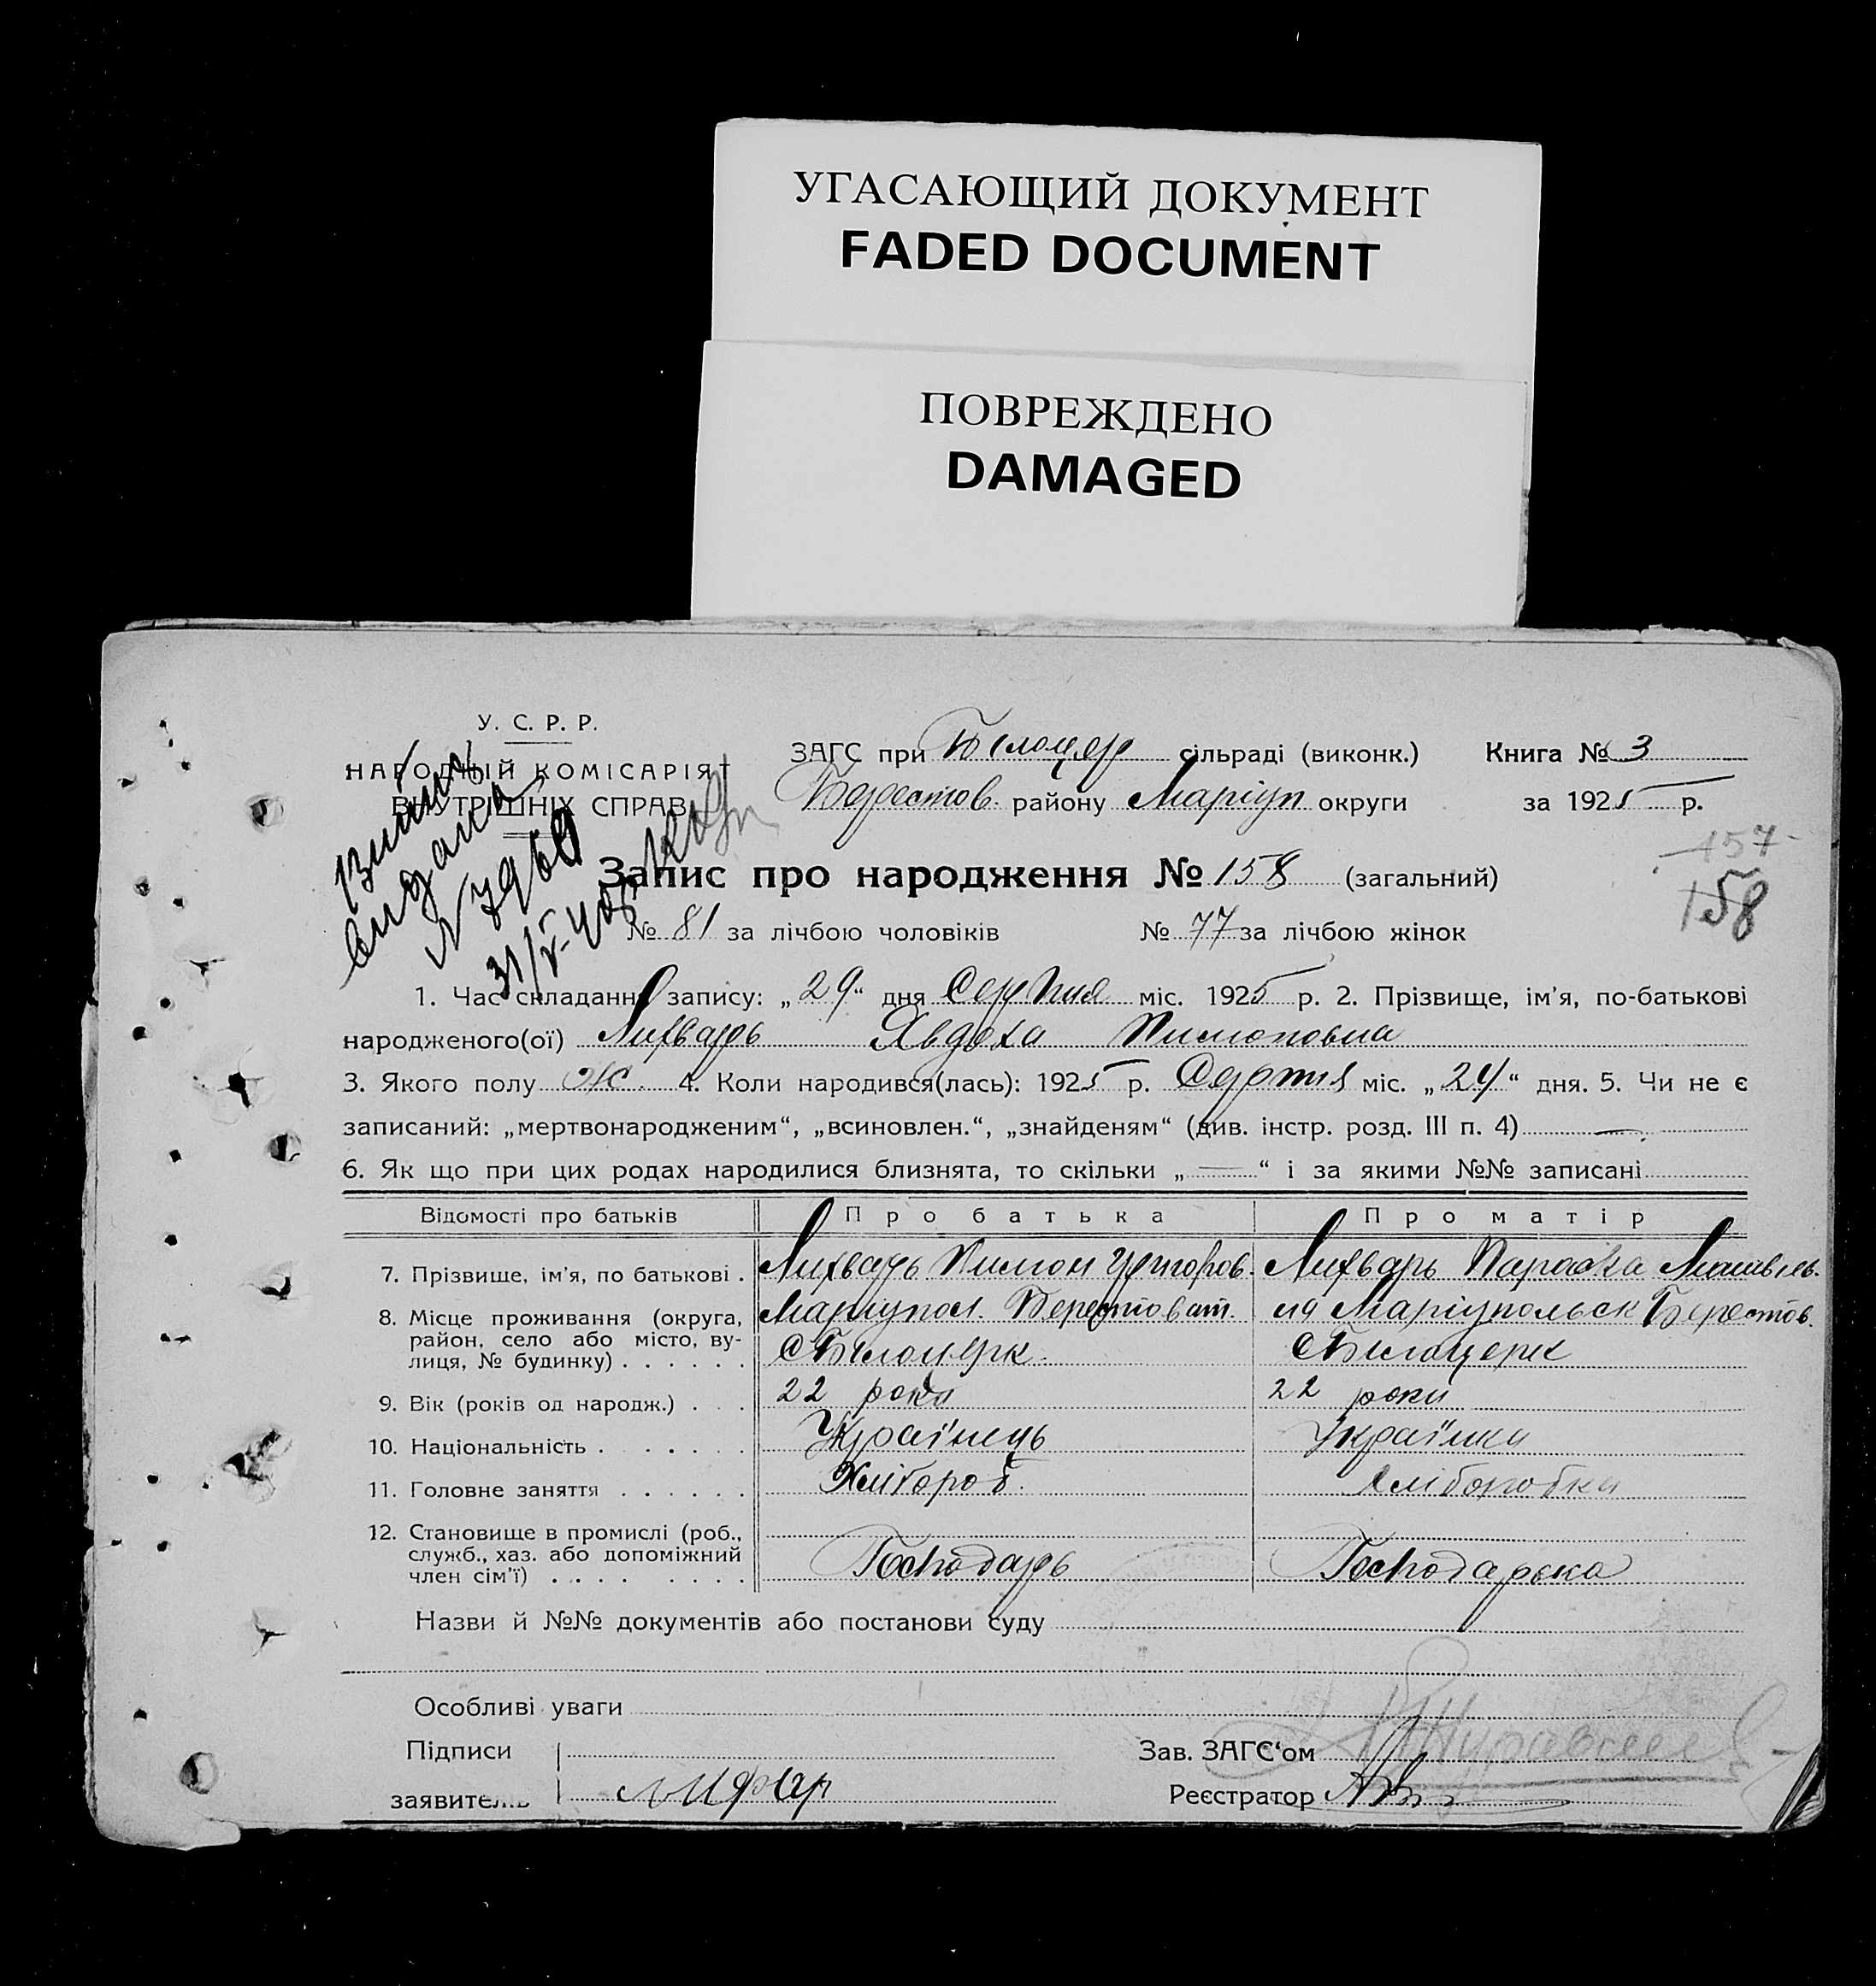 УГАСАЮЩИЙ ДОКУМЕНТ
FADED DOCUMENT
ПОВРЕЖДЕНО
DAMAGED
У. С. Р. Р.
НАРОДНІЙ КОМІСАРІЯТ
ВНУТРІШНІХ СПРАВ
ЗАГС при Білоцер сільраді (виконк.) Книга № 3
Берестов. району Маріуп округи за 1925 р.
видана
N 7960
157
158
Запис про народження № 158 (загальний)
№ 81 за лічбою чоловіків № 77 за лічбою жінок
1. Час складання запису: „29“ дня Серпня міс. 1925 р. 2. Прізвище, ім’я, по-батькові
народженого(ої) Лихварь Явдоха Пилиповна
3. Якого полу Ж. 4. Коли народився(лась): 1925 р. Серпня міс. „24“ дня. 5. Чи не є
записаний: „мертвонародженим“, „всиновлен.“, „знайденям“ (див. інстр. розд. III п. 4) —
6. Як що при цих родах народилися близнята, то скільки „—“ і за якими №№ записані
Відомості про батьків Про батька Про матір
7. Прізвище, ім’я, по батькові . Лихварь Пилип Григоров. Лихварь Параска
8. Місце проживання (округа, Маріупол. Берестоват. Маріупольск Берестов.
район, село або місто, ву-
лиця, № будинку) . . . . . . с Билоцерк. с Билоцерк
9. Вік (років од народж.) . . . 22 роки 22 роки
10. Національність . . . . . . Українець Українка
11. Головне заняття . . . . . . Хлібороб. Хліборобка
12. Становище в промислі (роб.,
служб., хаз. або допоміжний Господарь Господарька
член сім’ї) . . . . . . . .
Назви й №№ документів або постанови суду
Особливі уваги
Підписи Зав. ЗАГС‘ом
заявитель Реєстратор